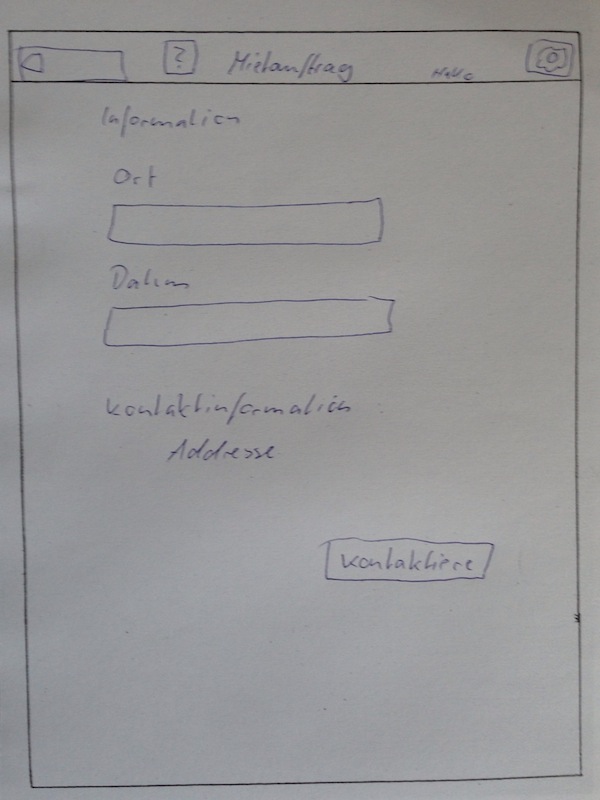 ?
Mietauftrag
Hallo
Information
Ort
Datum
Kontaktinformation :
Addresse
Kontaktiere